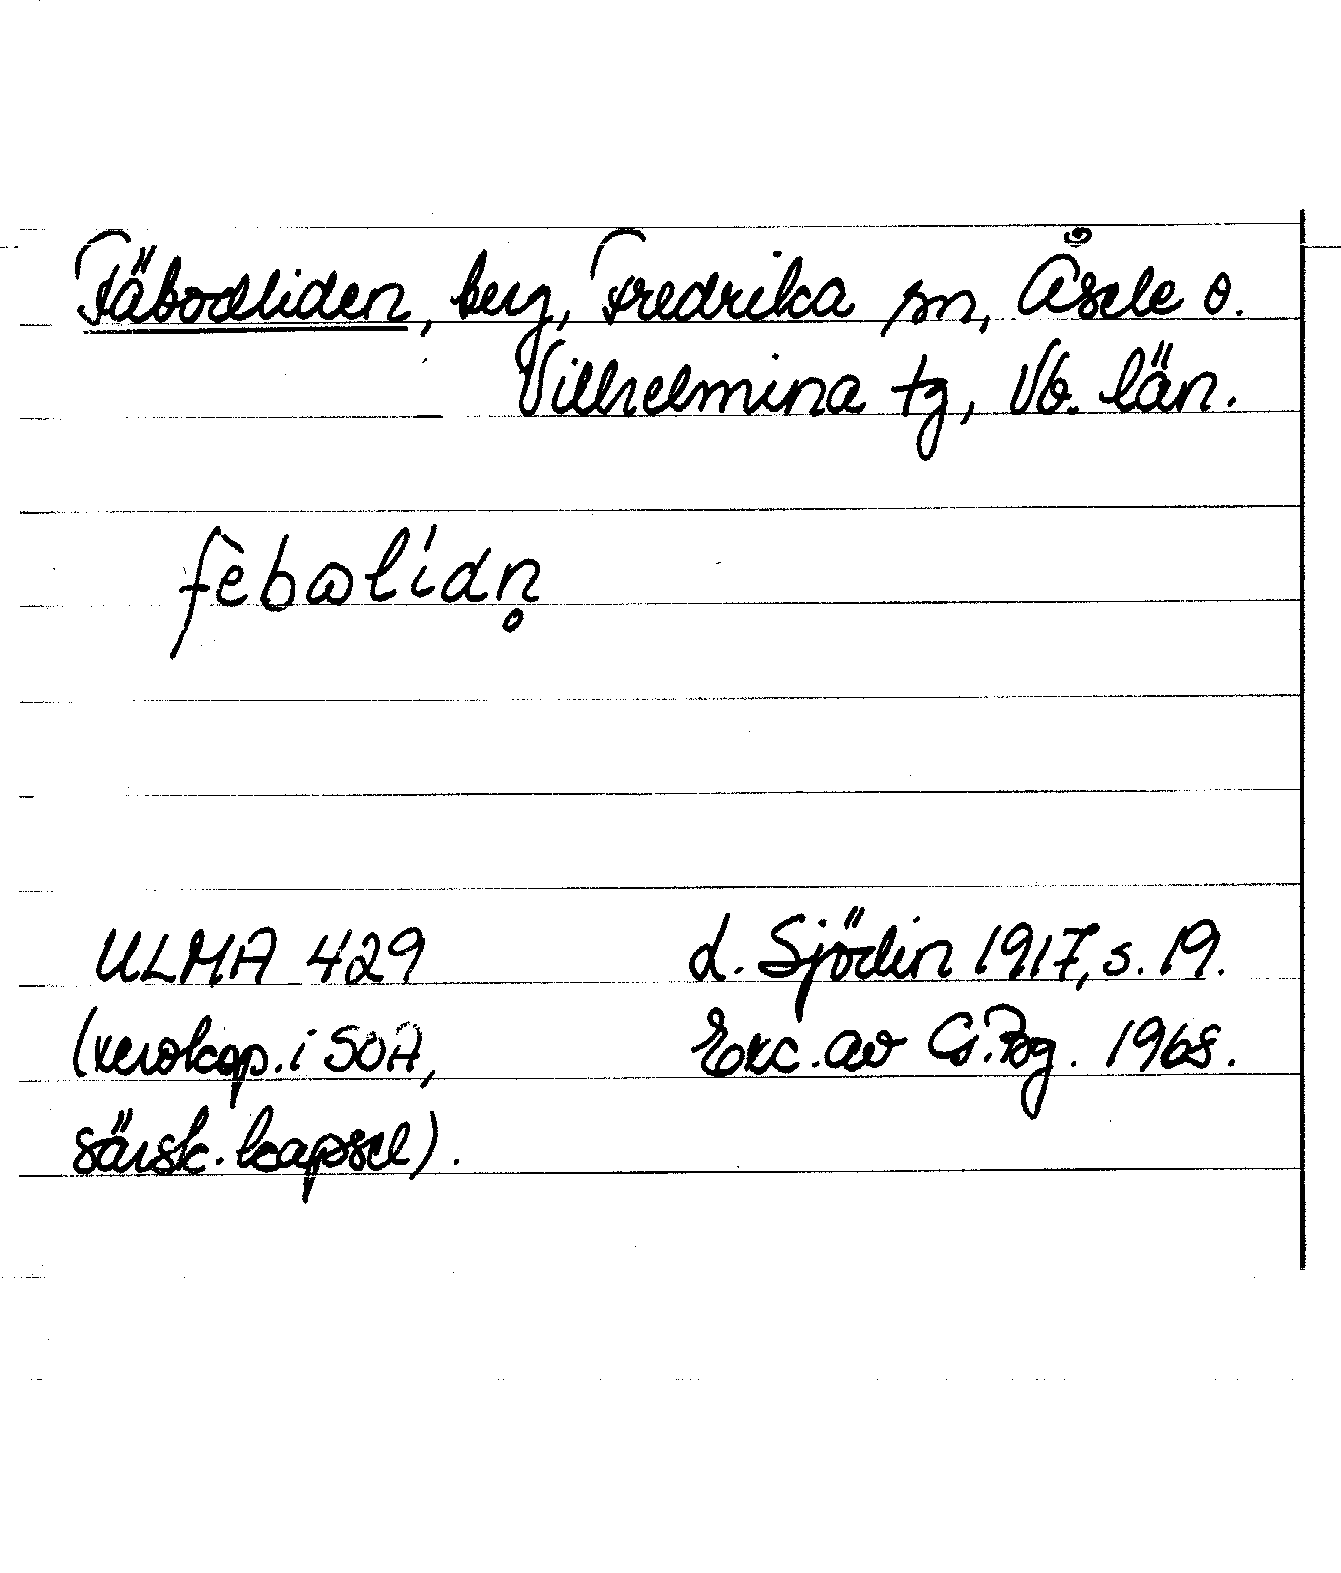 Fäbodliden, berg, Fredrika sn, Åsele o.
Vilhelmina tg, Vb. län.
fèbωlídn̥
ULMA 429 d. Sjödin 1917, s. 19.
(xerokop. i SOA, Exc. av G. Rbg. 1968.
särsk. kapsel).